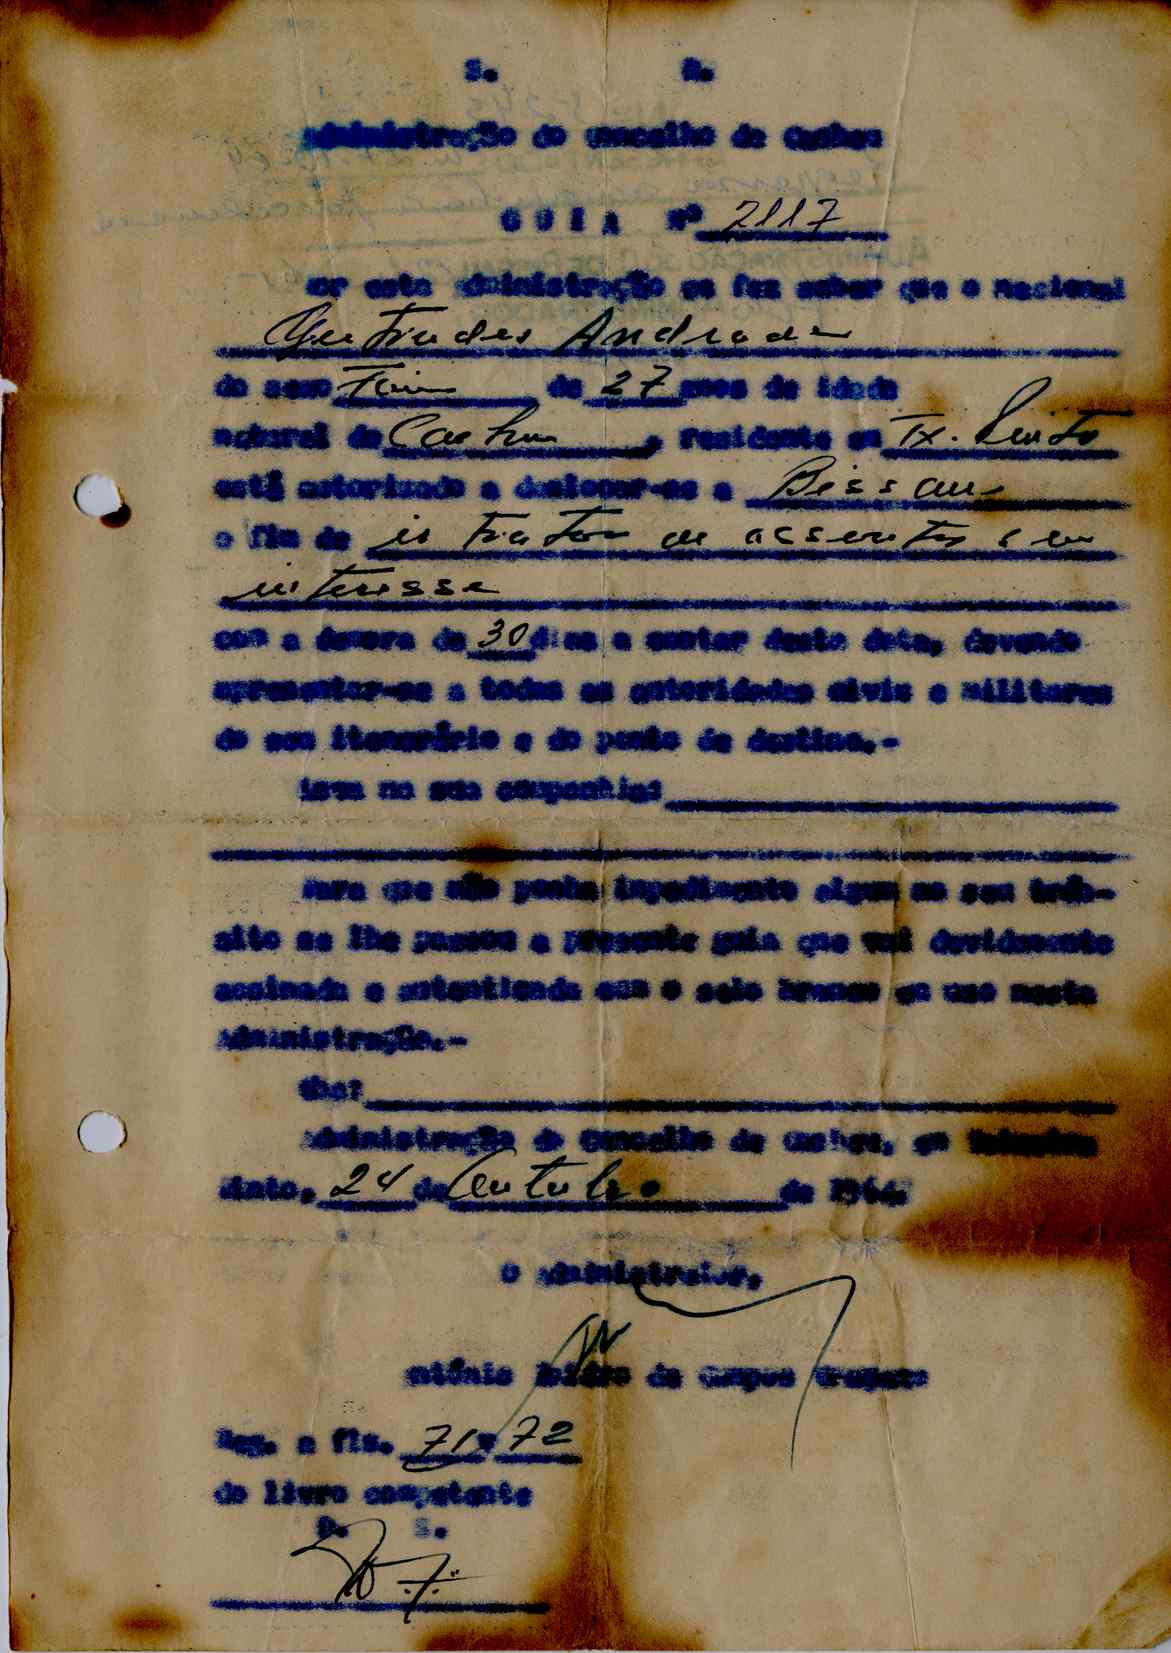 S. R.
Administração do Concelho de Cacheu
G U I A Nº 2117
Por esta Administração se faz saber que o nacional
Gertrudes Andrade
do sexo Fem de 27 anos de idade
natural de Cacheu, residente em Tx. Pinto
está autorizado a deslocar-se a Bissau
a fim de ir tratar de assuntos seu
interesse
com a demora de 30 dias a contar desta data, devendo
apresentar-se a todas as autoridades civis e militares
do seu itenerário e do ponto de destino.-
Leva na sua companhia:
Para que não ponha impedimento algum ao seu trân-
sito se lhe passou a presente guia que vai devidamente
assinada e autenticada com o selo branco em uso nesta
Administração.-
Obs:
Administração do Concelho de Cacheu, em Teixeira
Pinto, 24 de Outubro de 1964.
O Administrador,
António Isidro de Campos
Reg. a fls. 71 v 72
do livro competente